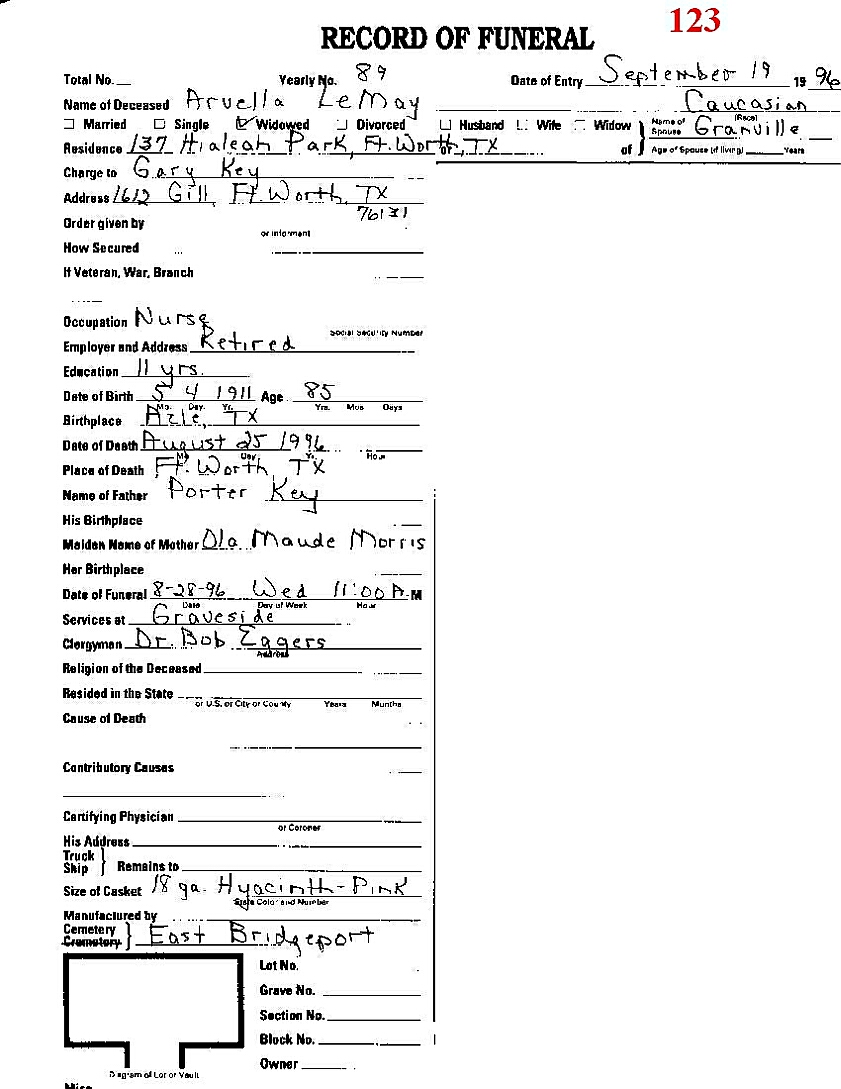 123
RECORD OF FUNERAL
Total No. Yearly No. 89 Date of Entry September 19 19 96
Name of Deceased Arvella LeMay Caucasian
(Race)
☐ Married ☐ Single ☑ Widowed ☐ Divorced ☐ Husband ☐ Wife ☐ Widow of } Name of Spouse Granville
Residence 137 Hialeah Park, Ft. Worth, TX Age of Spouse (if living) Years
Charge to Gary Key
Address 1612 Gill, Ft. Worth, TX
76131
Order given by
or Informant
How Secured
If Veteran, War, Branch
Occupation Nurse
Social Security Number
Employer and Address Retired
Education 11 yrs.
Date of Birth 5 4 1911 Age 85
Mo. Day. Yr. Yrs. Mos Days
Birthplace Azle, TX
Date of Death August 25 1996
Mo. Day Yr. Hour
Place of Death Ft. Worth, TX
Name of Father Porter Key
His Birthplace
Maiden Name of Mother Ola Maude Morris
Her Birthplace
Date of Funeral 8-28-96 Wed 11:00 A.M
Date Day of Week Hour
Services at Graveside
Clergyman Dr. Bob Eggers
Address
Religion of the Deceased
Resided in the State
or U.S. or City or County Years Months
Cause of Death
Contributory Causes
Certifying Physician
or Coroner
His Address
Truck
Ship } Remains to
Size of Casket 18 ga. Hyacinth-Pink
State Color and Number
Manufactured by
Cemetery
Crematory } East Bridgeport
Lot No.
Grave No.
Section No.
Block No.
Owner
Diagram of Lot or Vault
Misc